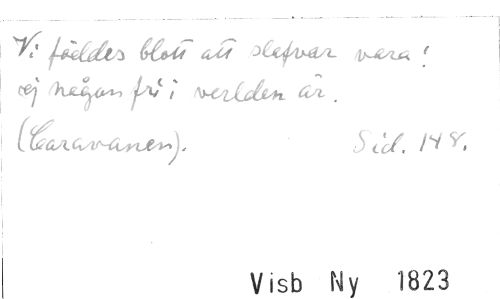 Vi föddes blott att slafvar vara!
ej någon fri i verlden är.
(Caravanen). Sid. 148.
Visb Ny 1823